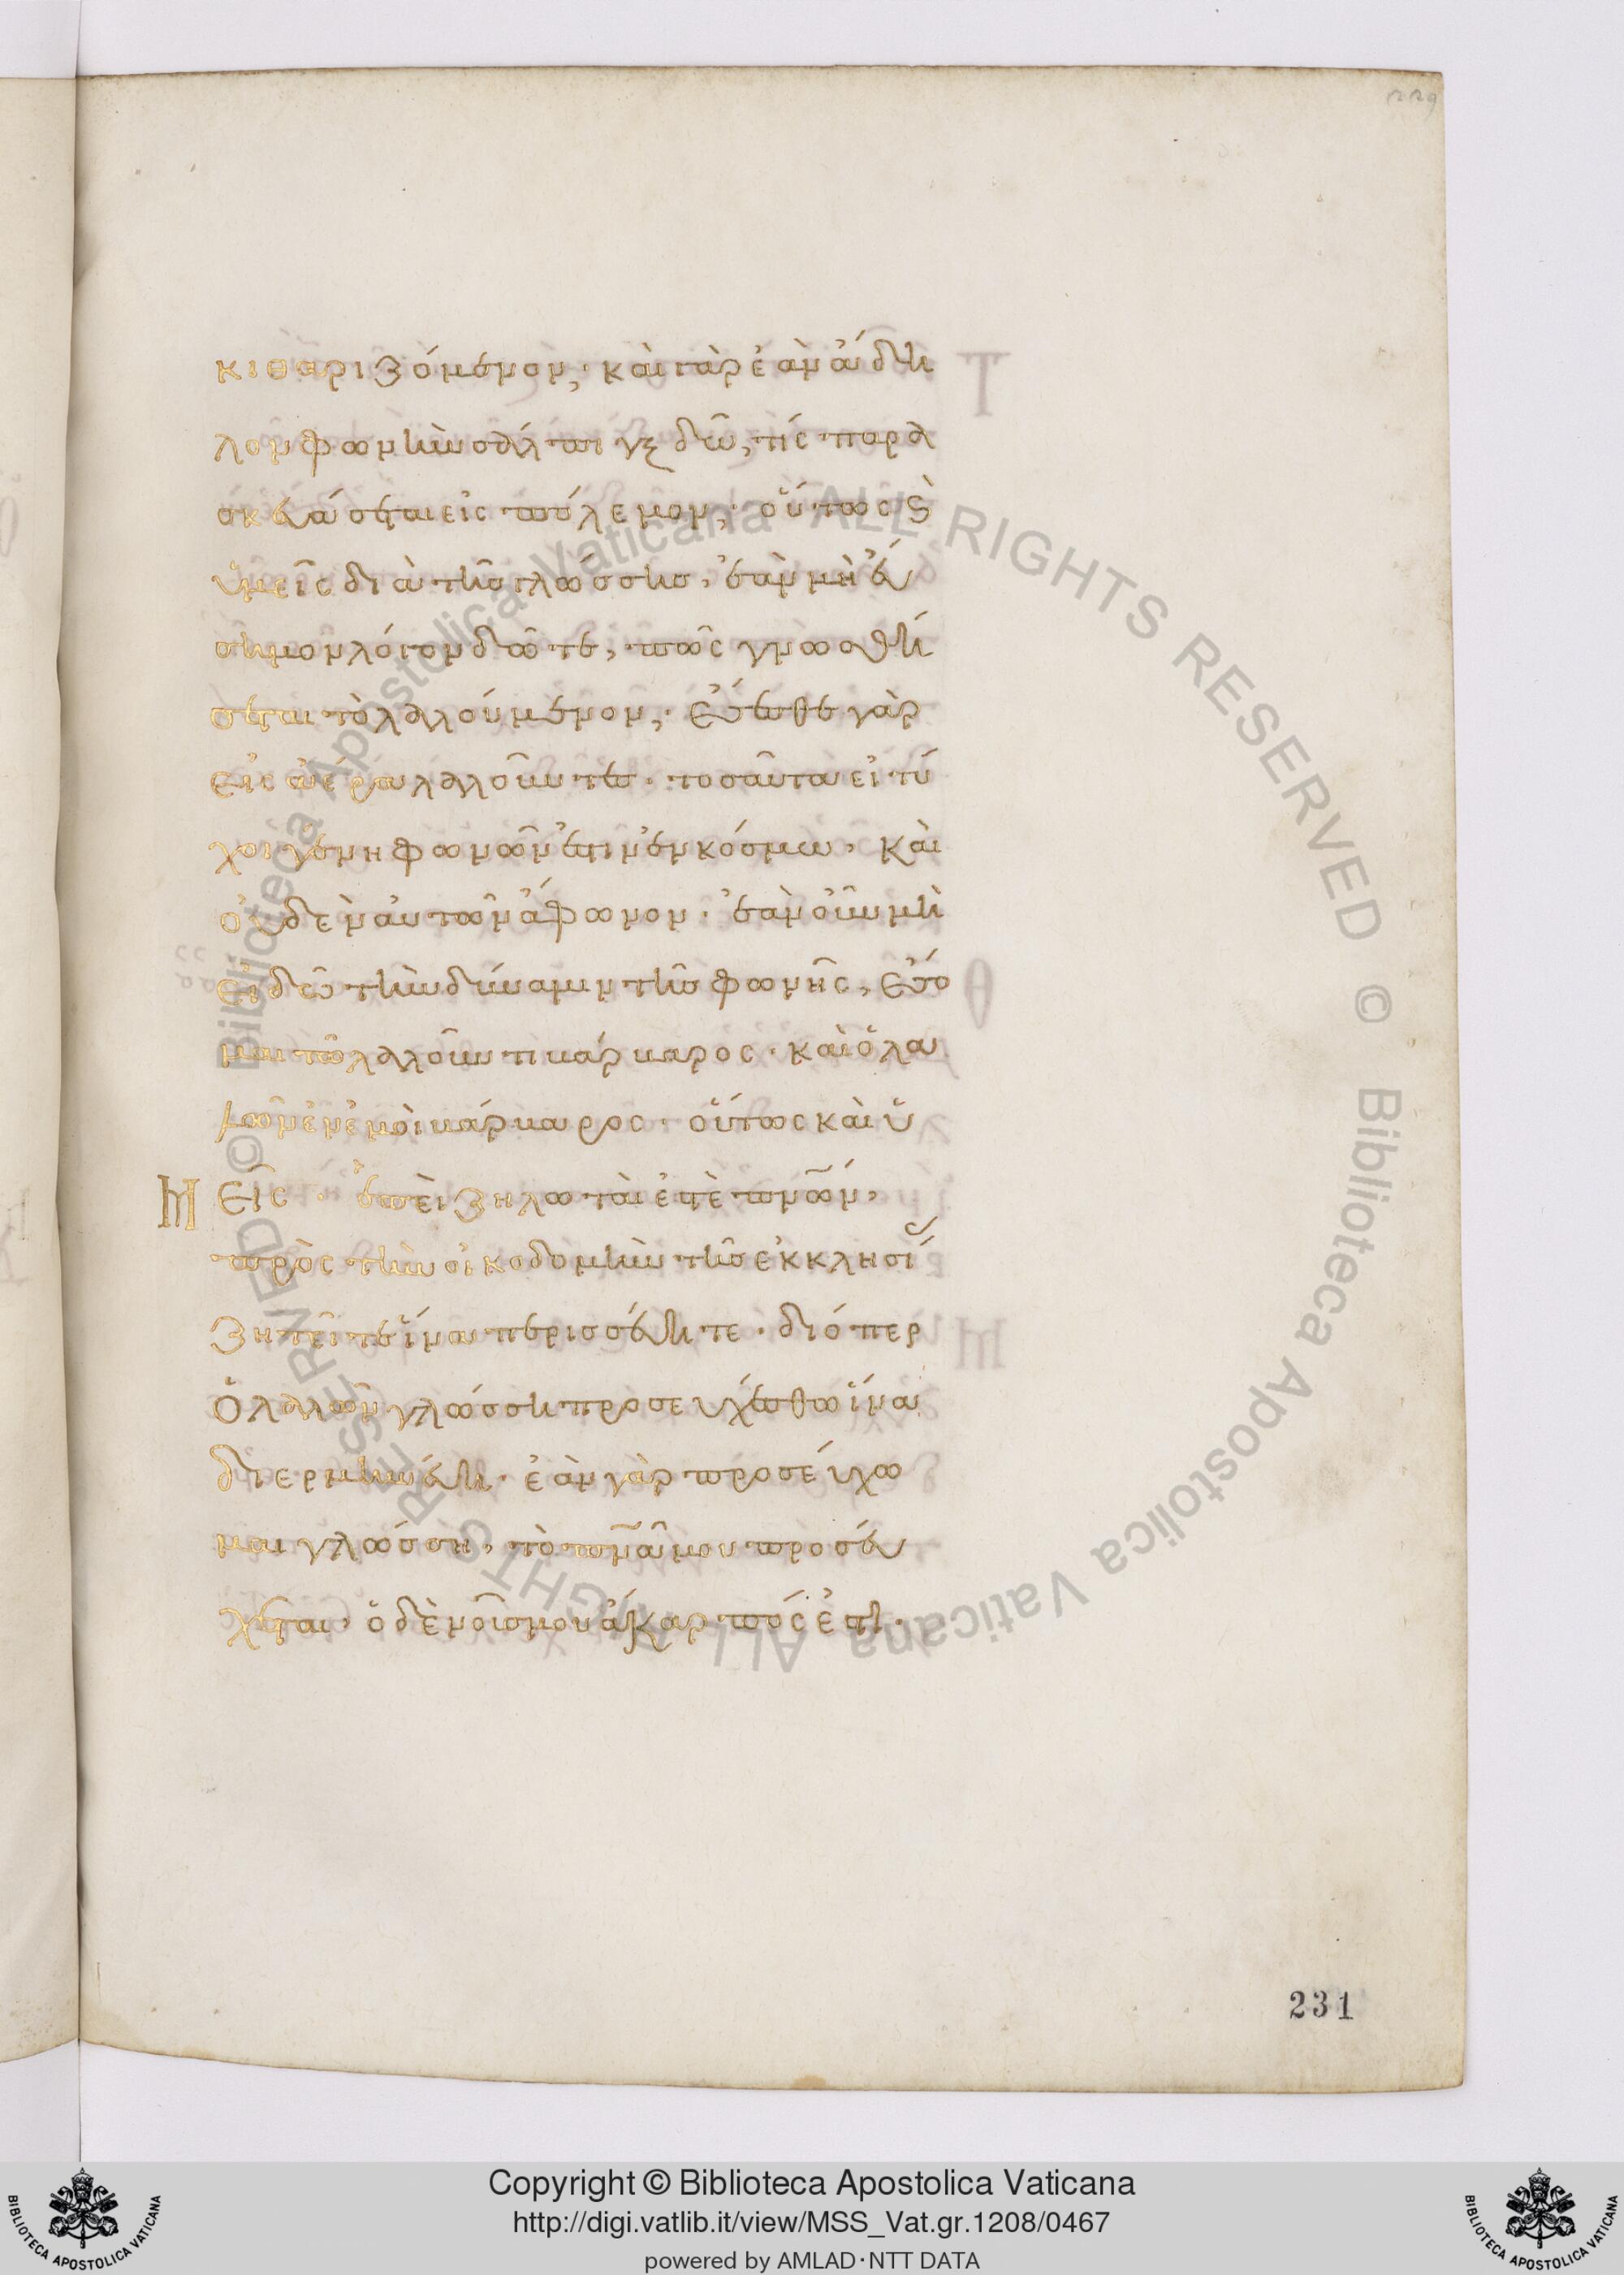 229
κιθαριζόμενον; · καὶ γὰρ ἐὰν ἄδη
λον φωνὴν σάλπιγξ δῶ, τίς παρα
σκευάσεται εἰς πόλεμον; · οὕτως ϗ
ὑμεῖς διὰ τῆς γλώσσης, ἐὰν μὴ εὔ
σημον λόγον δῶτε, πῶς γνωσθή
σεται τὸ λαλούμενον; · ἔσεσθε γὰρ
εἰς ἀέρα λαλοῦντες · τοσαῦτα εἰ τύ
χοι γένη φωνῶν ἐστιν ἐν κόσμω, καὶ
οὐδὲν αὐτῶν ἄφωνον · ἐὰν οὖν μὴ
εἰδῶ τὴν δύναμιν τῆς φωνῆς, ἔσο
μαι τῶ λαλοῦντι βάρβαρος · καὶ ὁ λα
λῶν ἐν ἐμοὶ βάρβαρος · οὕτως καὶ ὑ
μεῖς · ἐπεὶ ζηλωταί ἐστε πνῶν,
πρὸς τὴν οἰκοδομὴν τῆς ἐκκλησί
ζητεῖτε ἵνα περισσεύητε · διόπερ
ὁ λαλῶν γλώσση προσευχέσθω ἵνα
διερμηνεύη · ἐὰν γὰρ προσεύχω
μαι γλώσση, τὸ πνᾶ μου προσεύ
χεται · ὁ δὲ νοῦς μου ἄκαρπός ἐστι ·
231
Biblioteca Apostolica Vaticana ALL RIGHTS RESERVED ©
Biblioteca Apostolica Vaticana ALL RIGHTS RESERVED ©
Copyright © Biblioteca Apostolica Vaticana
http://digi.vatlib.it/view/MSS_Vat.gr.1208/0467
powered by AMLAD·NTT DATA
BIBLIOTECA APOSTOLICA VATICANA
BIBLIOTECA APOSTOLICA VATICANA